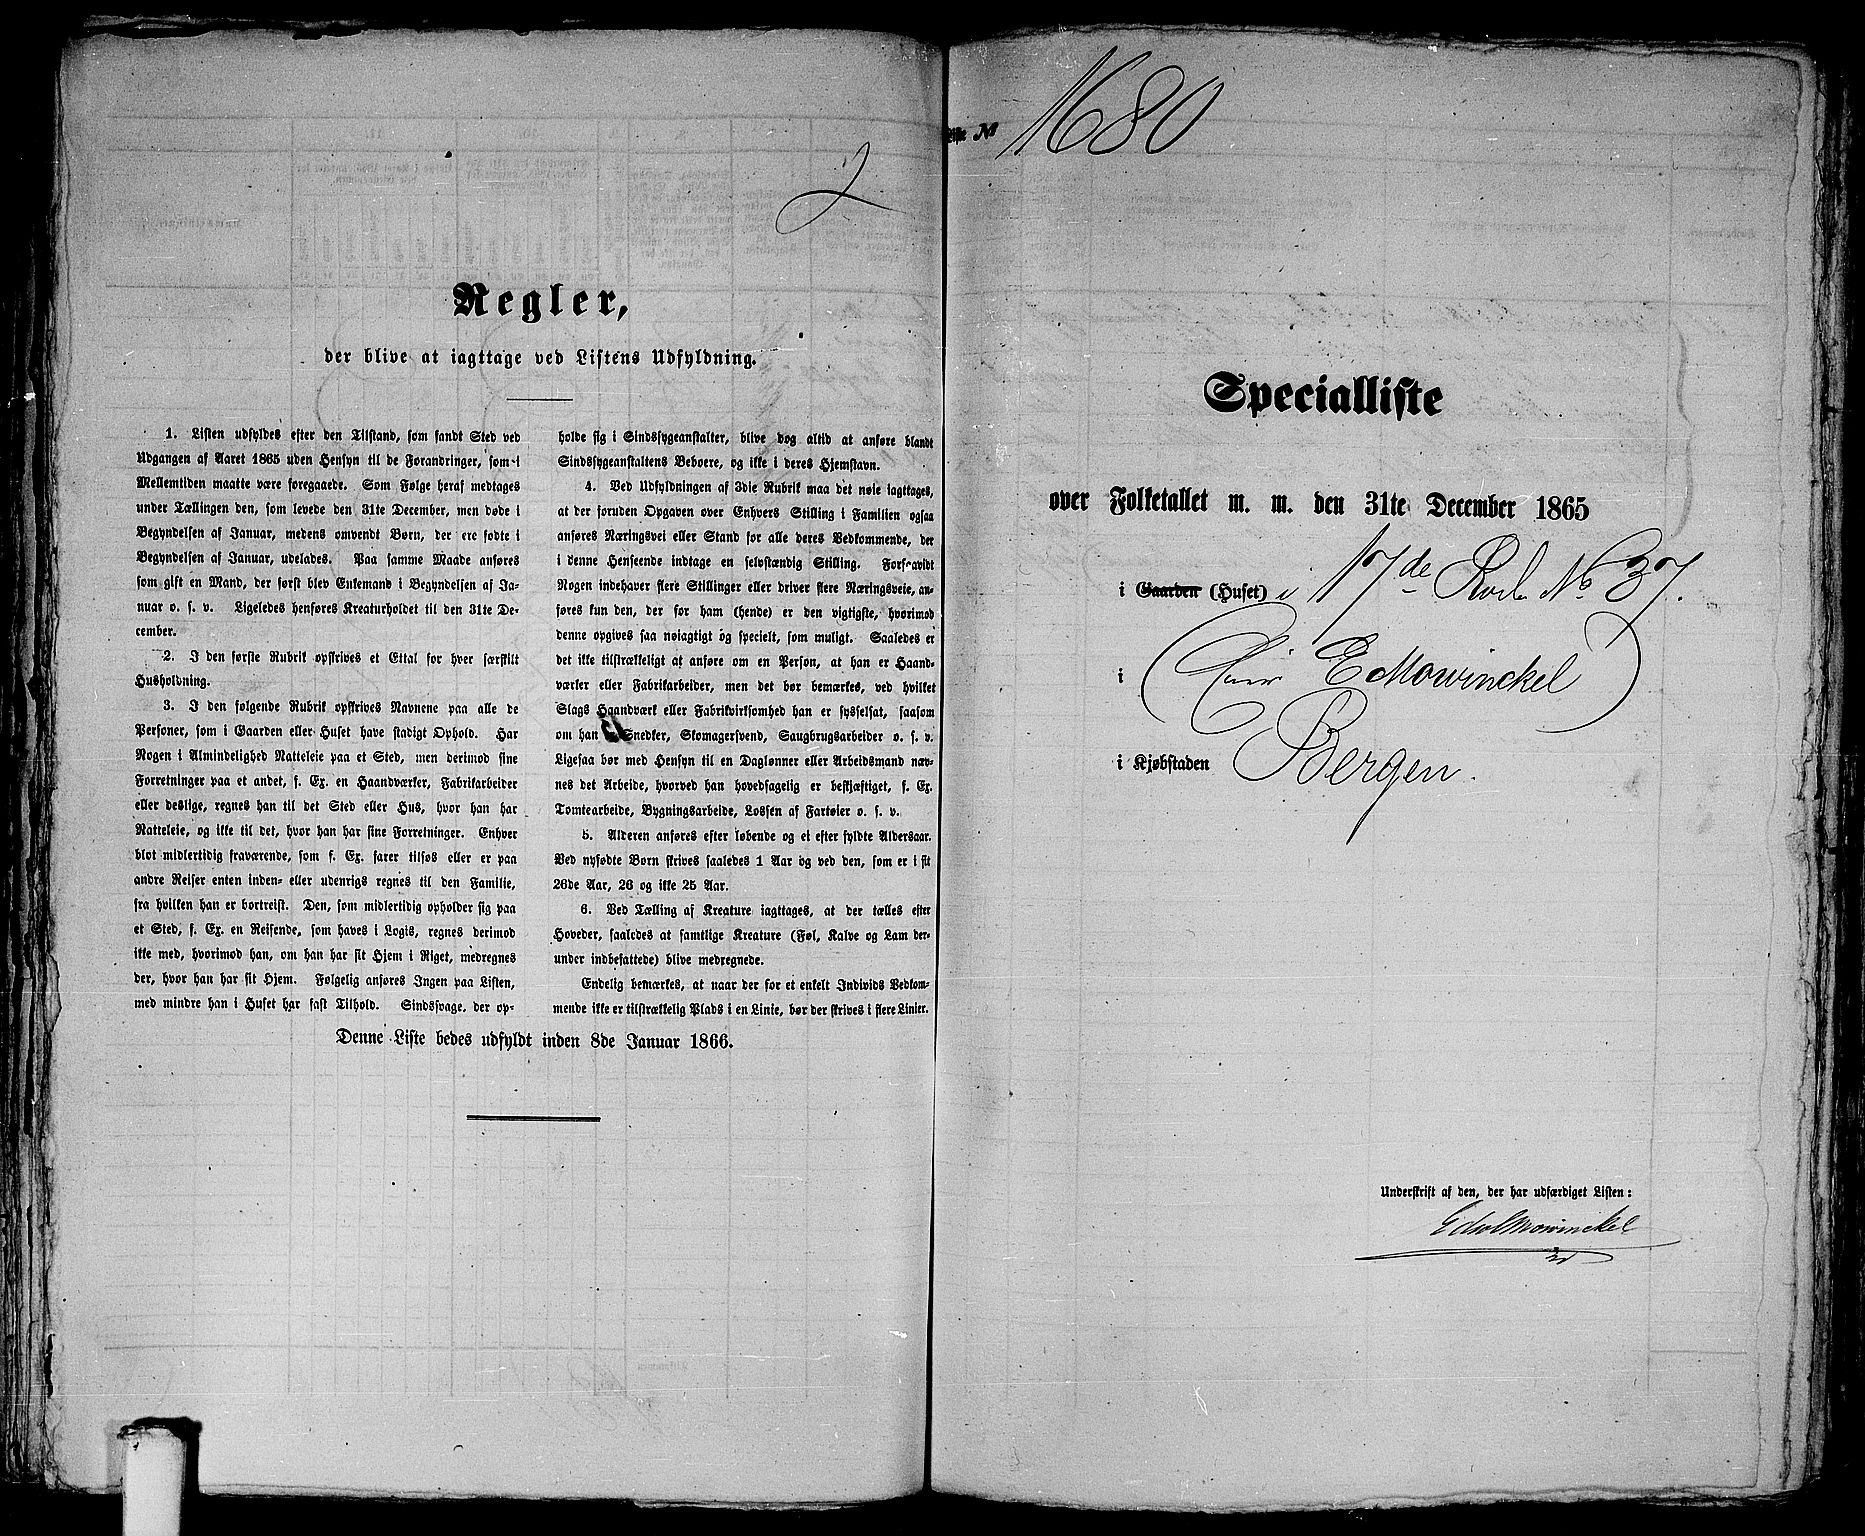 2
Regler,
der blive at iagttage ved Listens Udfyldning.
1. Listen udfyldes efter den Tilstand, som fandt Sted ved
Udgangen af Aaret 1865 uden Hensyn til de Forandringer, som i
Mellemtiden maatte være foregaaede. Som Følge heraf medtages
under Tællingen den, som levede den 31te December, men døde i
Begyndelsen af Januar, medens omvendt Børn, der ere fødte i
Begyndelsen af Januar, udelades. Paa samme Maade anføres
som gift en Mand, der først blev Enkemand i Begyndelsen af Ja-
nuar o. s. v. Ligeledes henføres Kreaturholdet til den 31te De-
cember.
2. I den første Rubrik opskrives et Ettal for hver særskilt
Husholdning.
3. I den følgende Rubrik opskrives Navnene paa alle de
Personer, som i Gaarden eller Huset have stadigt Ophold. Har
Nogen i Almindelighed Natteleie paa et Sted, men derimod sine
Forretninger paa et andet, f. Ex. en Haandværker, Fabrikarbeider
eller deslige, regnes han til det Sted eller Hus, hvor han har
Natteleie, og ikke til det, hvor han har sine Forretninger. Enhver
blot midlertidig fraværende, som f. Ex. farer tilsøs eller er paa
andre Reiser enten inden- eller udenrigs regnes til den Familie,
fra hvilken han er bortreist. Den, som midlertidig opholder sig paa
et Sted, f. Ex. en Reisende, som haves i Logis, regnes derimod
ikke med, hvorimod han, om han har sit Hjem i Riget, medregnes
der, hvor han har sit Hjem. Følgelig anføres Ingen paa Listen,
med mindre han i Huset har fast Tilhold. Sindssvage, der op-
holde sig i Sindssygeanstalter, blive dog altid at anføre blandt
Sindssygeanstaltens Beboere, og ikke i deres Hjemstavn.
4. Ved Udfyldningen af 3die Rubrik maa det nøie iagttages,
at der foruden Opgaven over Enhvers Stilling i Familien ogsaa
anføres Næringsvei eller Stand for alle deres Vedkommende, der
i denne Henseende indtage en selvstændig Stilling. Forsaavidt
Nogen indehaver flere Stillinger eller driver flere Næringsveie, an-
føres kun den, der for ham (hende) er den vigtigste, hvorimod
denne opgives saa nøiagtigt og specielt, som muligt. Saaledes er
det ikke tilstrækkeligt at anføre om en Person, at han er Haand-
værker eller Fabrikarbeider, men det bør bemærkes, ved hvilket
Slags Haandværk eller Fabrikvirksomhed han er sysselsat, saasom
om han Snedker, Skomagersvend, Saugbrugsarbeider o. s. v.
Ligesaa bør med Hensyn til en Dagløner eller Arbeidsmand næv-
nes det Arbeide, hvorved han hovedsagelig er beskjæftiget, f. Ex.
Tomtearbeide, Bygningsarbeide, Lossen af Fartøier o. s. v.
5. Alderen anføres efter løbende og ei efter fyldte Aldersaar.
Ved nyfødte Børn skrives saaledes 1 Aar og ved den, som er i sit
26de Aar, 26 og ikke 25 Aar.
6. Ved Tælling af Kreature iagttages, at der tælles efter
Hoveder, saaledes at samtlige Kreature (Føl, Kalve og Lam der-
under indbefattede) blive medregnede.
Endelig bemærkes, at naar der for et enkelt Individs Vedkom-
mende ikke er tilstrækkelig Plads i en Linie, bør der skrives i flere Linier.
Denne Liste bedes udfyldt inden 8de Januar 1866.
Liste № 1680
Specialliste
over Folketallet m. m. den 31te December 1865
i Gaarden (Huset) i 17de Rode No 37.
i ( Eier E Mowinckel )
i Kjøbstaden Bergen.
Underskrift af den, der har udfærdiget Listen:
Edv Mowinckel